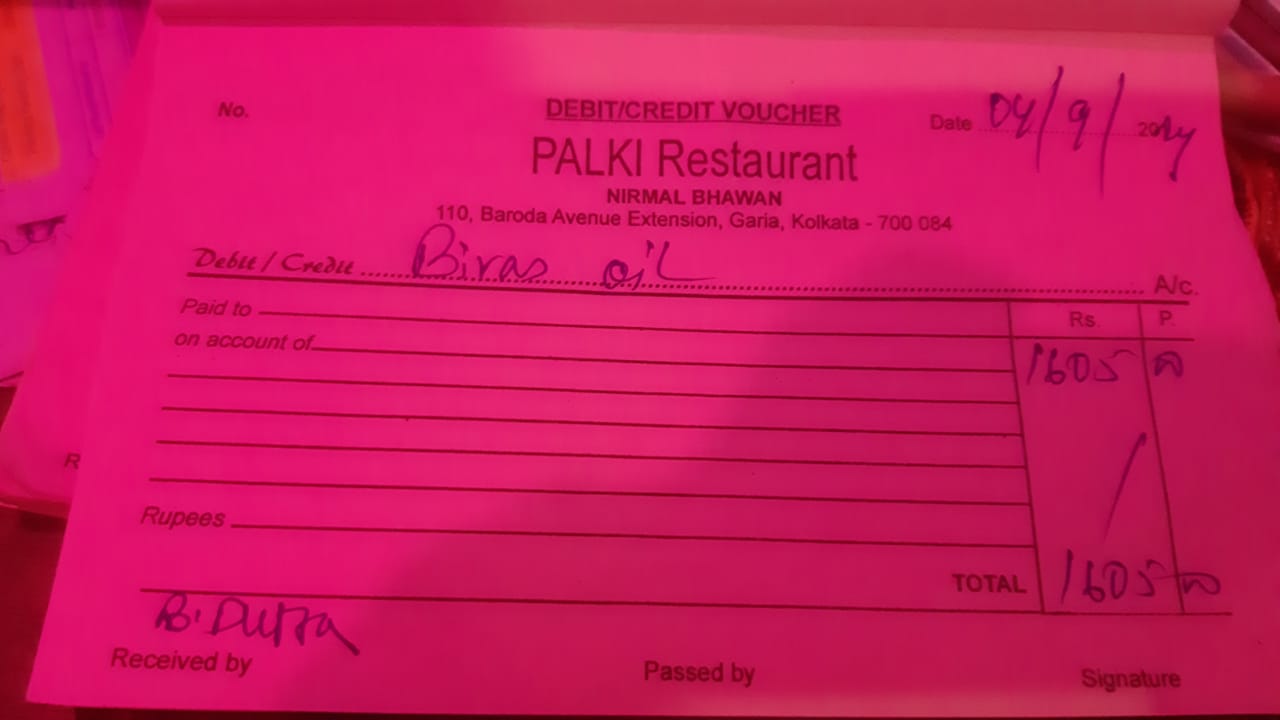 No.
DEBIT/CREDIT VOUCHER
Date 04/9/2024
PALKI Restaurant
NIRMAL BHAWAN
110, Baroda Avenue Extension, Garia, Kolkata - 700 084
Debit / Credit Biras oil A/c.
Paid to
Rs. P.
on account of
1605 00
Rupees
TOTAL 1605 00
B. Dutta
Received by Passed by Signature